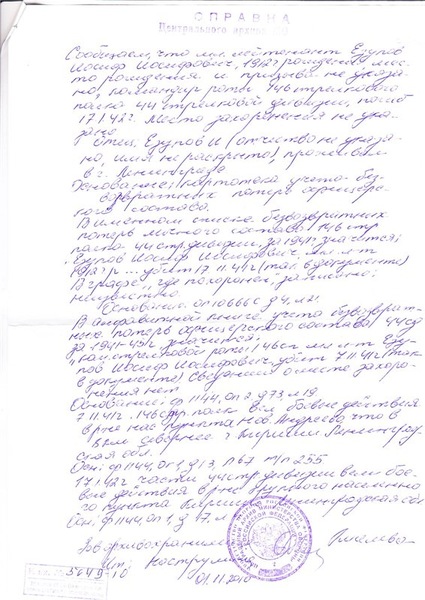 СПРАВКА
Центрального архива
Сообщаем, что мл. лейтенант Езупов
Иосиф Иосифович, 1912 г рождения, мес-
то рождения и призыва не указа-
но, командир роты 146 стрелкового
полка 44 стрелковой дивизии, погиб
17.1.42 г. Место захоронения не ука-
зано.
Отец, Езупов И (отчество не указа-
но, имя не раскрыто), проживал
в г. Ленинграде
Основание: картотека учета без-
возвратных потерь офицерс-
кого состава.
В именном списке безвозвратных
потерь личного состава 146 стр
полка 44 стр. дивизии, за 1941 г значится:
Езупов Иосиф Иосифович, мл. л-т
1912 г р ... убит 17.11.41 г (так в документе)
В графе "где похоронен" записано:
неизвестно.
Основание:
В алфавитной книге учета безвозврат-
ных потерь офицерского состава 44 сд
за 1941-45 г значится:
ком. стрелковой роты 146 сп мл. л-т Езу-
пов Иосиф Иосифович, убит 7.11.41 г (так
в документе) сведений о месте захоро-
нения нет.
Основание: ф 1144, оп 2, д 73, л 19
7.11.41 г. 146 стр. полк вел боевые действия
в р-не нас. пункта Нов. Андреево, что в
км севернее г Кириши Ленинград-
ской обл.
Осн: ф 1144, оп 1, д 13, л 67
17.1.42 г части 44 стр дивизии вели бое-
вые действия в р-не населенно-
го пункта Кириши Ленинградская обл
Осн: ф 1144, оп 1, д 17, л
Зав. архивохранилищем
Исп.
01.11.2010